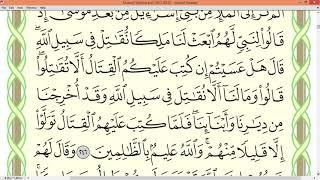 ألم تر إلى الملإ من بني إسرءيل من بعد موسى إذ
قالوا لنبي لهم ابعث لنا ملكا نقاتل في سبيل الله
قال هل عسيتم إن كتب عليكم القتال ألا تقاتلوا
قالوا وما لنا ألا نقاتل في سبيل الله وقد أخرجنا
من ديارنا وأبنائنا فلما كتب عليهم القتال تولوا
إلا قليلا منهم والله عليم بالظالمين ٢٤٦ وقال لهم